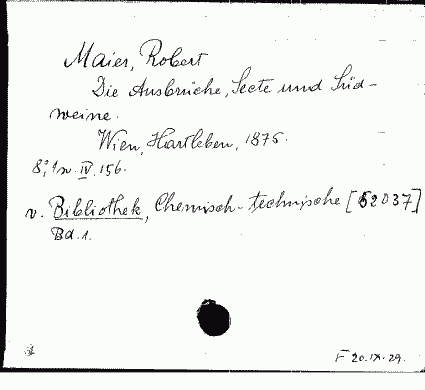 Maier, Robert
Die Ausbrüche, Secte und Süd-
weine.
Wien, Hartleben, 1875.
8°, 1n. IV. 156.
v. Bibliothek, Chemisch-technische [62037]
Bd. 1.
F 20.IX.29.